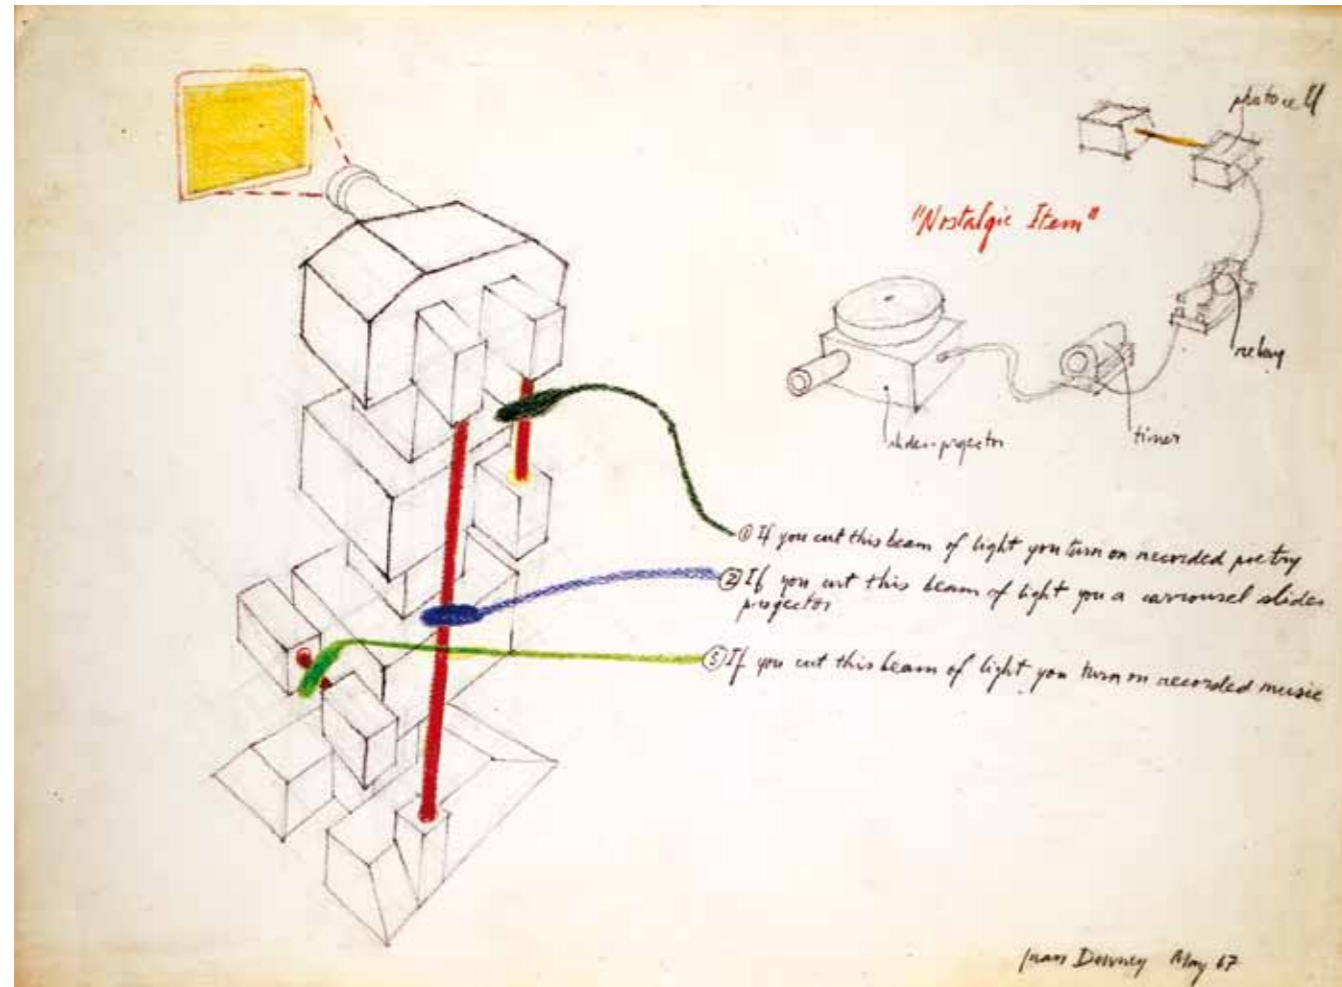 photocell
"Nostalgic Item"
relay
slides-projector
timer
① If you cut this beam of light you turn on recorded poetry
② If you cut this beam of light you a carrousel slides
projector
③ If you cut this beam of light you turn on recorded music
Juan Downey May 67